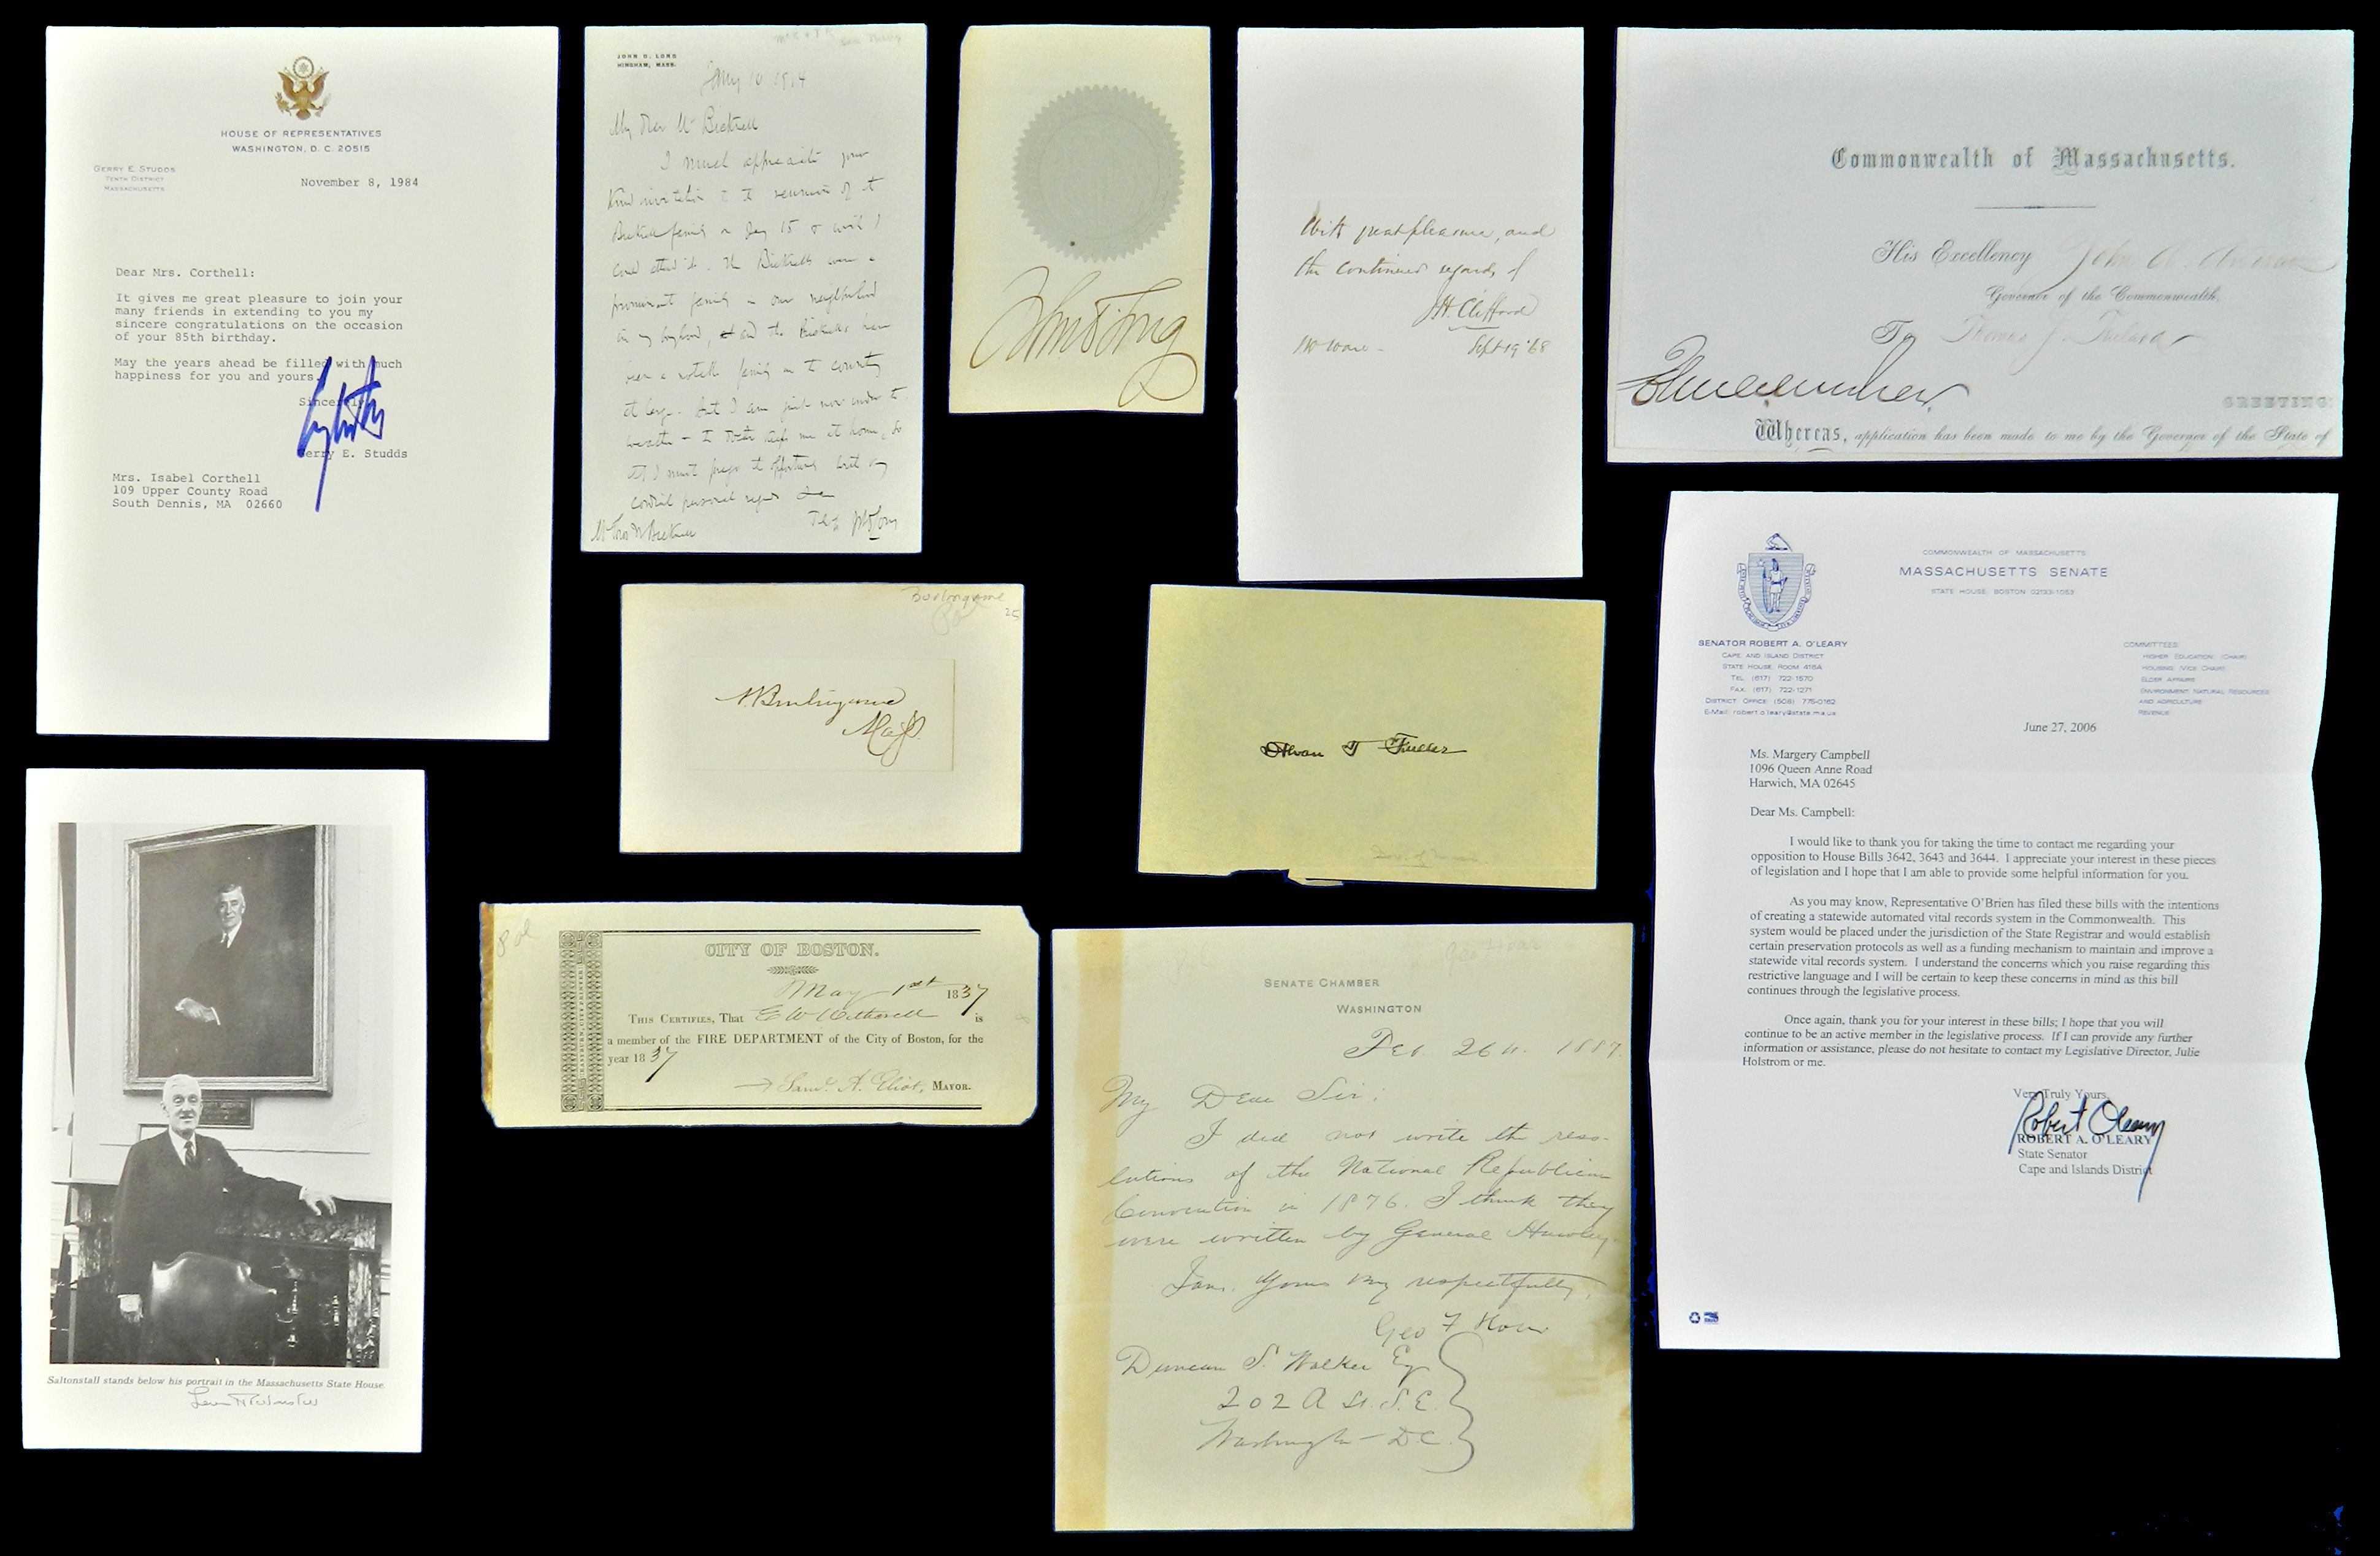 HOUSE OF REPRESENTATIVES
WASHINGTON, D. C. 20515
GERRY E. STUDDS
TENTH DISTRICT
MASSACHUSETTS
November 8, 1984
Dear Mrs. Corthell:
It gives me great pleasure to join your
many friends in extending to you my
sincere congratulations on the occasion
of your 85th birthday.
May the years ahead be filled with much
happiness for you and yours.
Sincerely
Gerry E. Studds
Mrs. Isabel Corthell
109 Upper County Road
South Dennis, MA 02660
JOHN D. LONG
HINGHAM, MASS.
My Dear Mr Bicknell
I much appreciate your
kind invitation to the reunion of the
Bicknell family on Jany 15 & wish I
could attend it. The Bicknells were a
prominent family in our neighborhood
in my boyhood, and the Bicknells have
been a notable family in the country
at large. But I am just now under the
weather
cordial personal regards
John D Long
With great pleasure, and
the continued regards of
J.H. Clifford
Mr Ware -
Sept 19 '68
Commonwealth of Massachusetts.
His Excellency John A. Andrew
Governor of the Commonwealth,
To Thomas J.
GREETING:
Whereas, application has been made to me by the Governor of the State of
Burlingame
25
A. Burlingame
Mass.
Alvan T Fuller
Gov. of Mass.
COMMONWEALTH OF MASSACHUSETTS
MASSACHUSETTS SENATE
STATE HOUSE, BOSTON 02133-1053
SENATOR ROBERT A. O'LEARY
CAPE AND ISLAND DISTRICT
STATE HOUSE, ROOM 416A
TEL. (617) 722-1570
FAX. (617) 722-1271
DISTRICT OFFICE (508) 775-0162
E-Mail: robert.o'leary@state.ma.us
COMMITTEES:
HIGHER EDUCATION (CHAIR)
HOUSING (VICE CHAIR)
ELDER AFFAIRS
ENVIRONMENT, NATURAL RESOURCES
AND AGRICULTURE
REVENUE
June 27, 2006
Ms. Margery Campbell
1096 Queen Anne Road
Harwich, MA 02645
Dear Ms. Campbell:
I would like to thank you for taking the time to contact me regarding your
opposition to House Bills 3642, 3643 and 3644. I appreciate your interest in these pieces
of legislation and I hope that I am able to provide some helpful information for you.
As you may know, Representative O'Brien has filed these bills with the intentions
of creating a statewide automated vital records system in the Commonwealth. This
system would be placed under the jurisdiction of the State Registrar and would establish
certain preservation protocols as well as a funding mechanism to maintain and improve a
statewide vital records system. I understand the concerns which you raise regarding this
restrictive language and I will be certain to keep these concerns in mind as this bill
continues through the legislative process.
Once again, thank you for your interest in these bills; I hope that you will
continue to be an active member in the legislative process. If I can provide any further
information or assistance, please do not hesitate to contact my Legislative Director, Julie
Holstrom or me.
Very Truly Yours,
Robert O'Leary
ROBERT A. O'LEARY
State Senator
Cape and Islands District
Saltonstall stands below his portrait in the Massachusetts State House.
CITY OF BOSTON.
May 1st 1837
THIS CERTIFIES, That E W is
a member of the FIRE DEPARTMENT of the City of Boston, for the
year 1837
Saml. A. Eliot, MAYOR.
SENATE CHAMBER
WASHINGTON
Feb. 26th. 1887.
My Dear Sir:
I did not write the reso-
lutions of the National Republican
Convention in 1876. I think they
were written by General Hawley.
I am, Yours very respectfully,
Geo F Hoar
Duncan S. Walker Esq
202 A St. S.E.
Washington D.C.